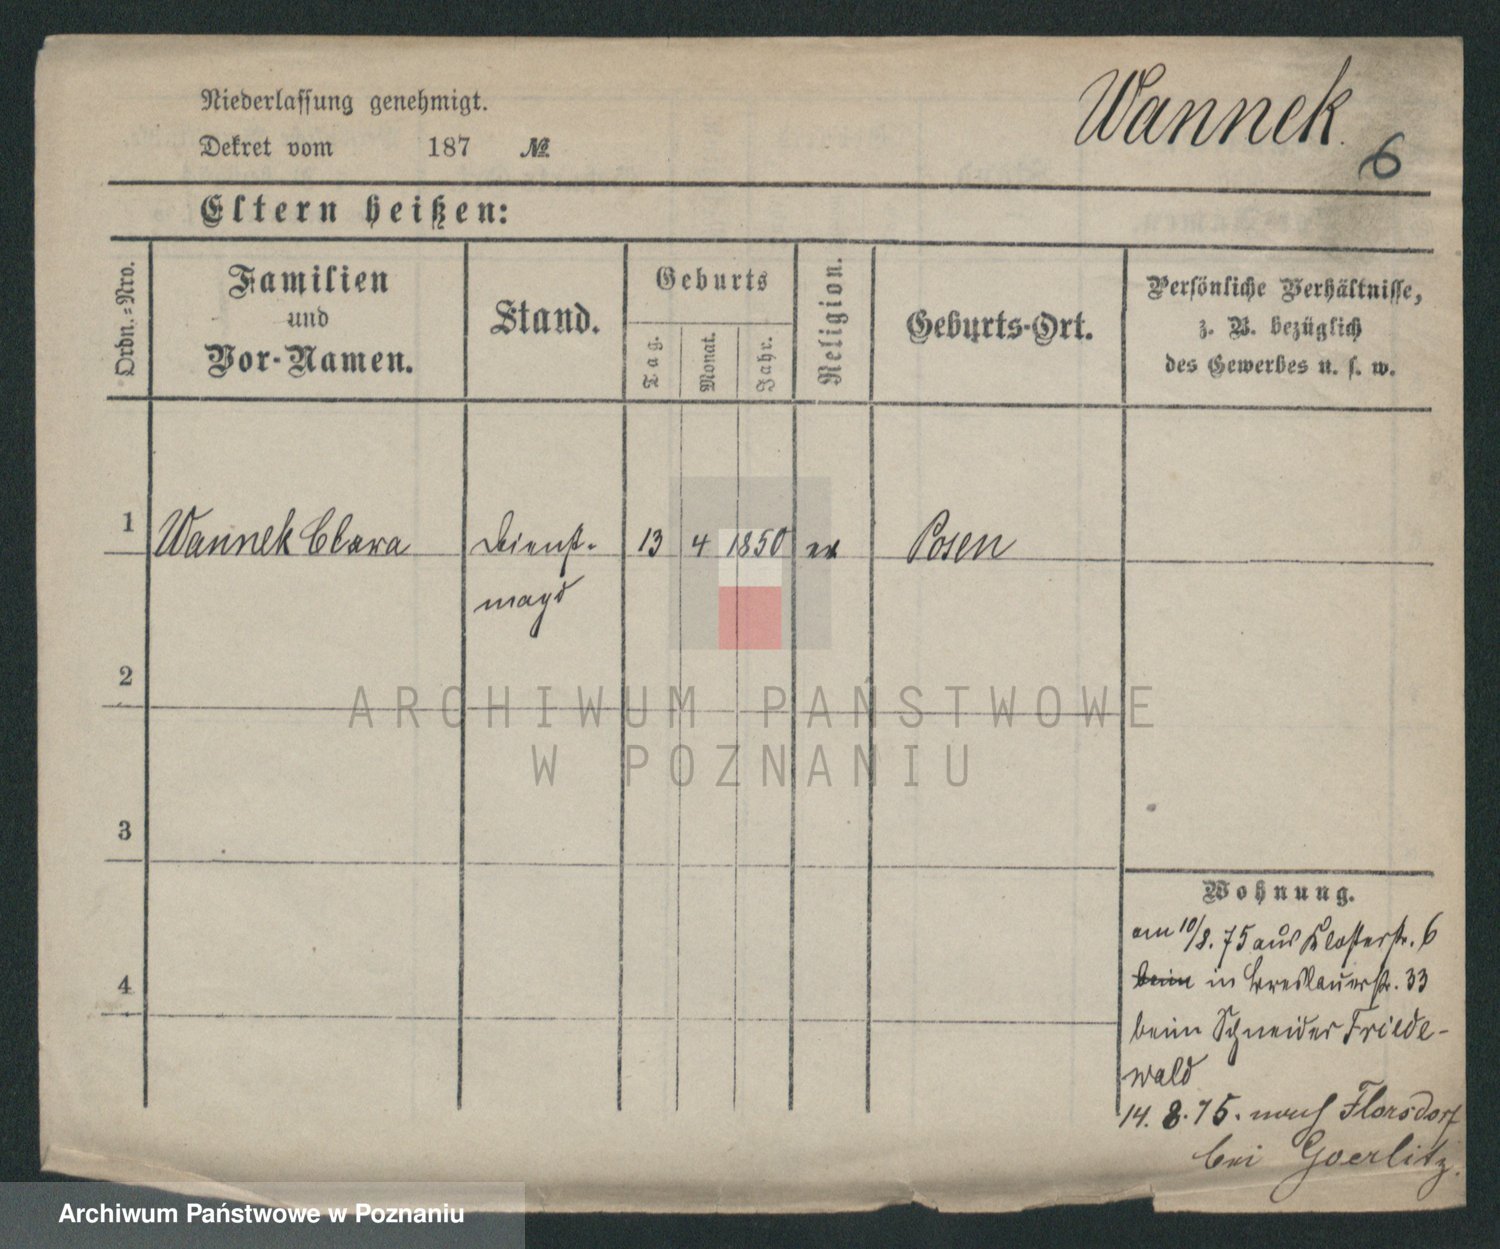 Niederlassung genehmigt.
Wannek.
Dekret vom 187 №
6
Eltern heißen:
Ordn.=Nro.
Familien
und
Vor-Namen.
Stand.
Geburts
Tag.
Monat.
Jahr.
Religion.
Geburts-Ort.
Persönliche Verhältnisse,
z. B. bezüglich
des Gewerbes u. s. w.
1 Wannek Clara Dienst- 13 4 1850 ev Posen
magd
2
ARCHIWUM PAŃSTWOWE
W POZNANIU
3
Wohnung.
am 10/8. 75 aus Klosterstr. 6
beim in Breslauerstr. 33
4
beim Schneider Friede-
wald
14. 8. 75. nach Florsdorf
bei Goerlitz.
Archiwum Państwowe w Poznaniu